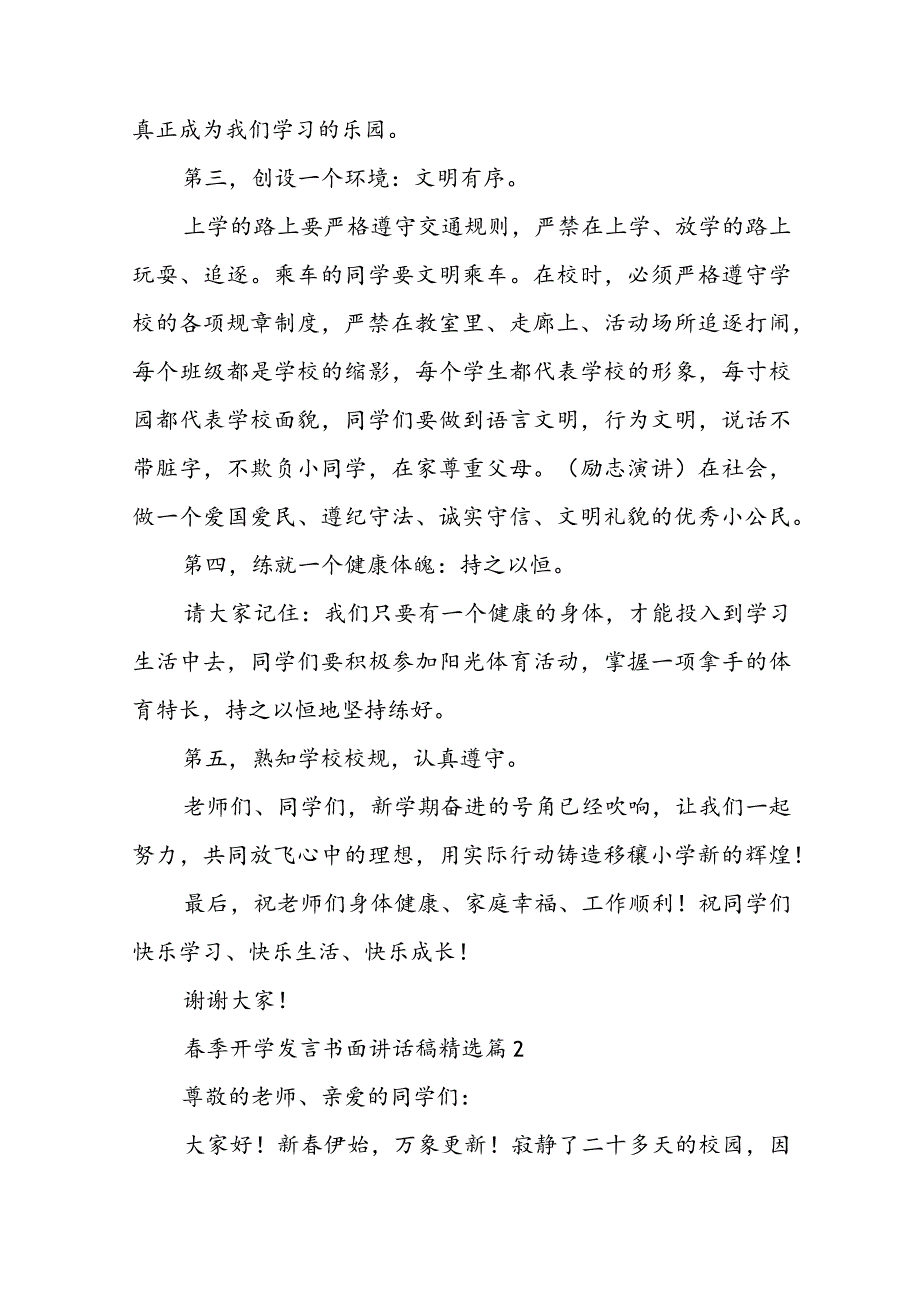 真正成为我们学习的乐园。
第三，创设一个环境：文明有序。
上学的路上要严格遵守交通规则，严禁在上学、放学的路上
玩耍、追逐。乘车的同学要文明乘车。在校时，必须严格遵守学
校的各项规章制度，严禁在教室里、走廊上、活动场所追逐打闹，
每个班级都是学校的缩影，每个学生都代表学校的形象，每寸校
园都代表学校面貌，同学们要做到语言文明，行为文明，说话不
带脏字，不欺负小同学，在家尊重父母。（励志演讲）在社会，
做一个爱国爱民、遵纪守法、诚实守信、文明礼貌的优秀小公民。
第四，练就一个健康体魄：持之以恒。
请大家记住：我们只要有一个健康的身体，才能投入到学习
生活中去，同学们要积极参加阳光体育活动，掌握一项拿手的体
育特长，持之以恒地坚持练好。
第五，熟知学校校规，认真遵守。
老师们、同学们，新学期奋进的号角已经吹响，让我们一起
努力，共同放飞心中的理想，用实际行动铸造移穰小学新的辉煌！
最后，祝老师们身体健康、家庭幸福、工作顺利！祝同学们
快乐学习、快乐生活、快乐成长！
谢谢大家！
春季开学发言书面讲话稿精选篇2
尊敬的老师、亲爱的同学们：
大家好！新春伊始，万象更新！寂静了二十多天的校园，因